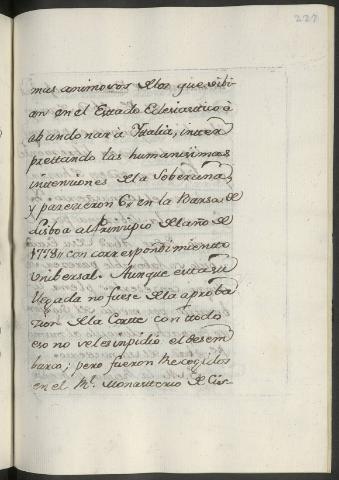 227
mas animosos de los que vibi-
an en el Estado Eclesiastico à
abandonar à Ytalia, inter
pretando las humanisimas
intenciones de la Soberana,
y parecieron 6,, en la Barsa de
Lisboa al Principio del año de
1778,, con correspondimiento
universal. Aunque esta su
llegada no fuese de la aproba
zion de la Corte con todo
eso no se les inpidio el desem
barco; pero fueron Recogidos
en el Rl. Monasterio de Cis-